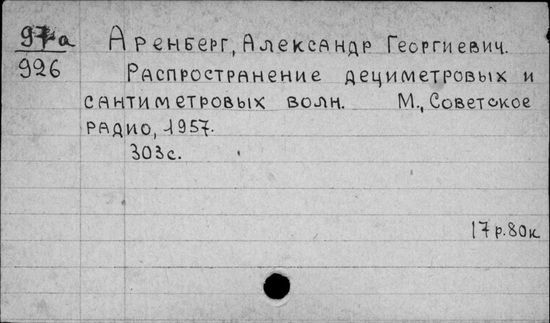 97a
926
Аренберг, Александр Георгиевич.
Распространение дециметровых и
сантиметровых волн. М., Советское
радио, 1957.
303с.
17р.80к